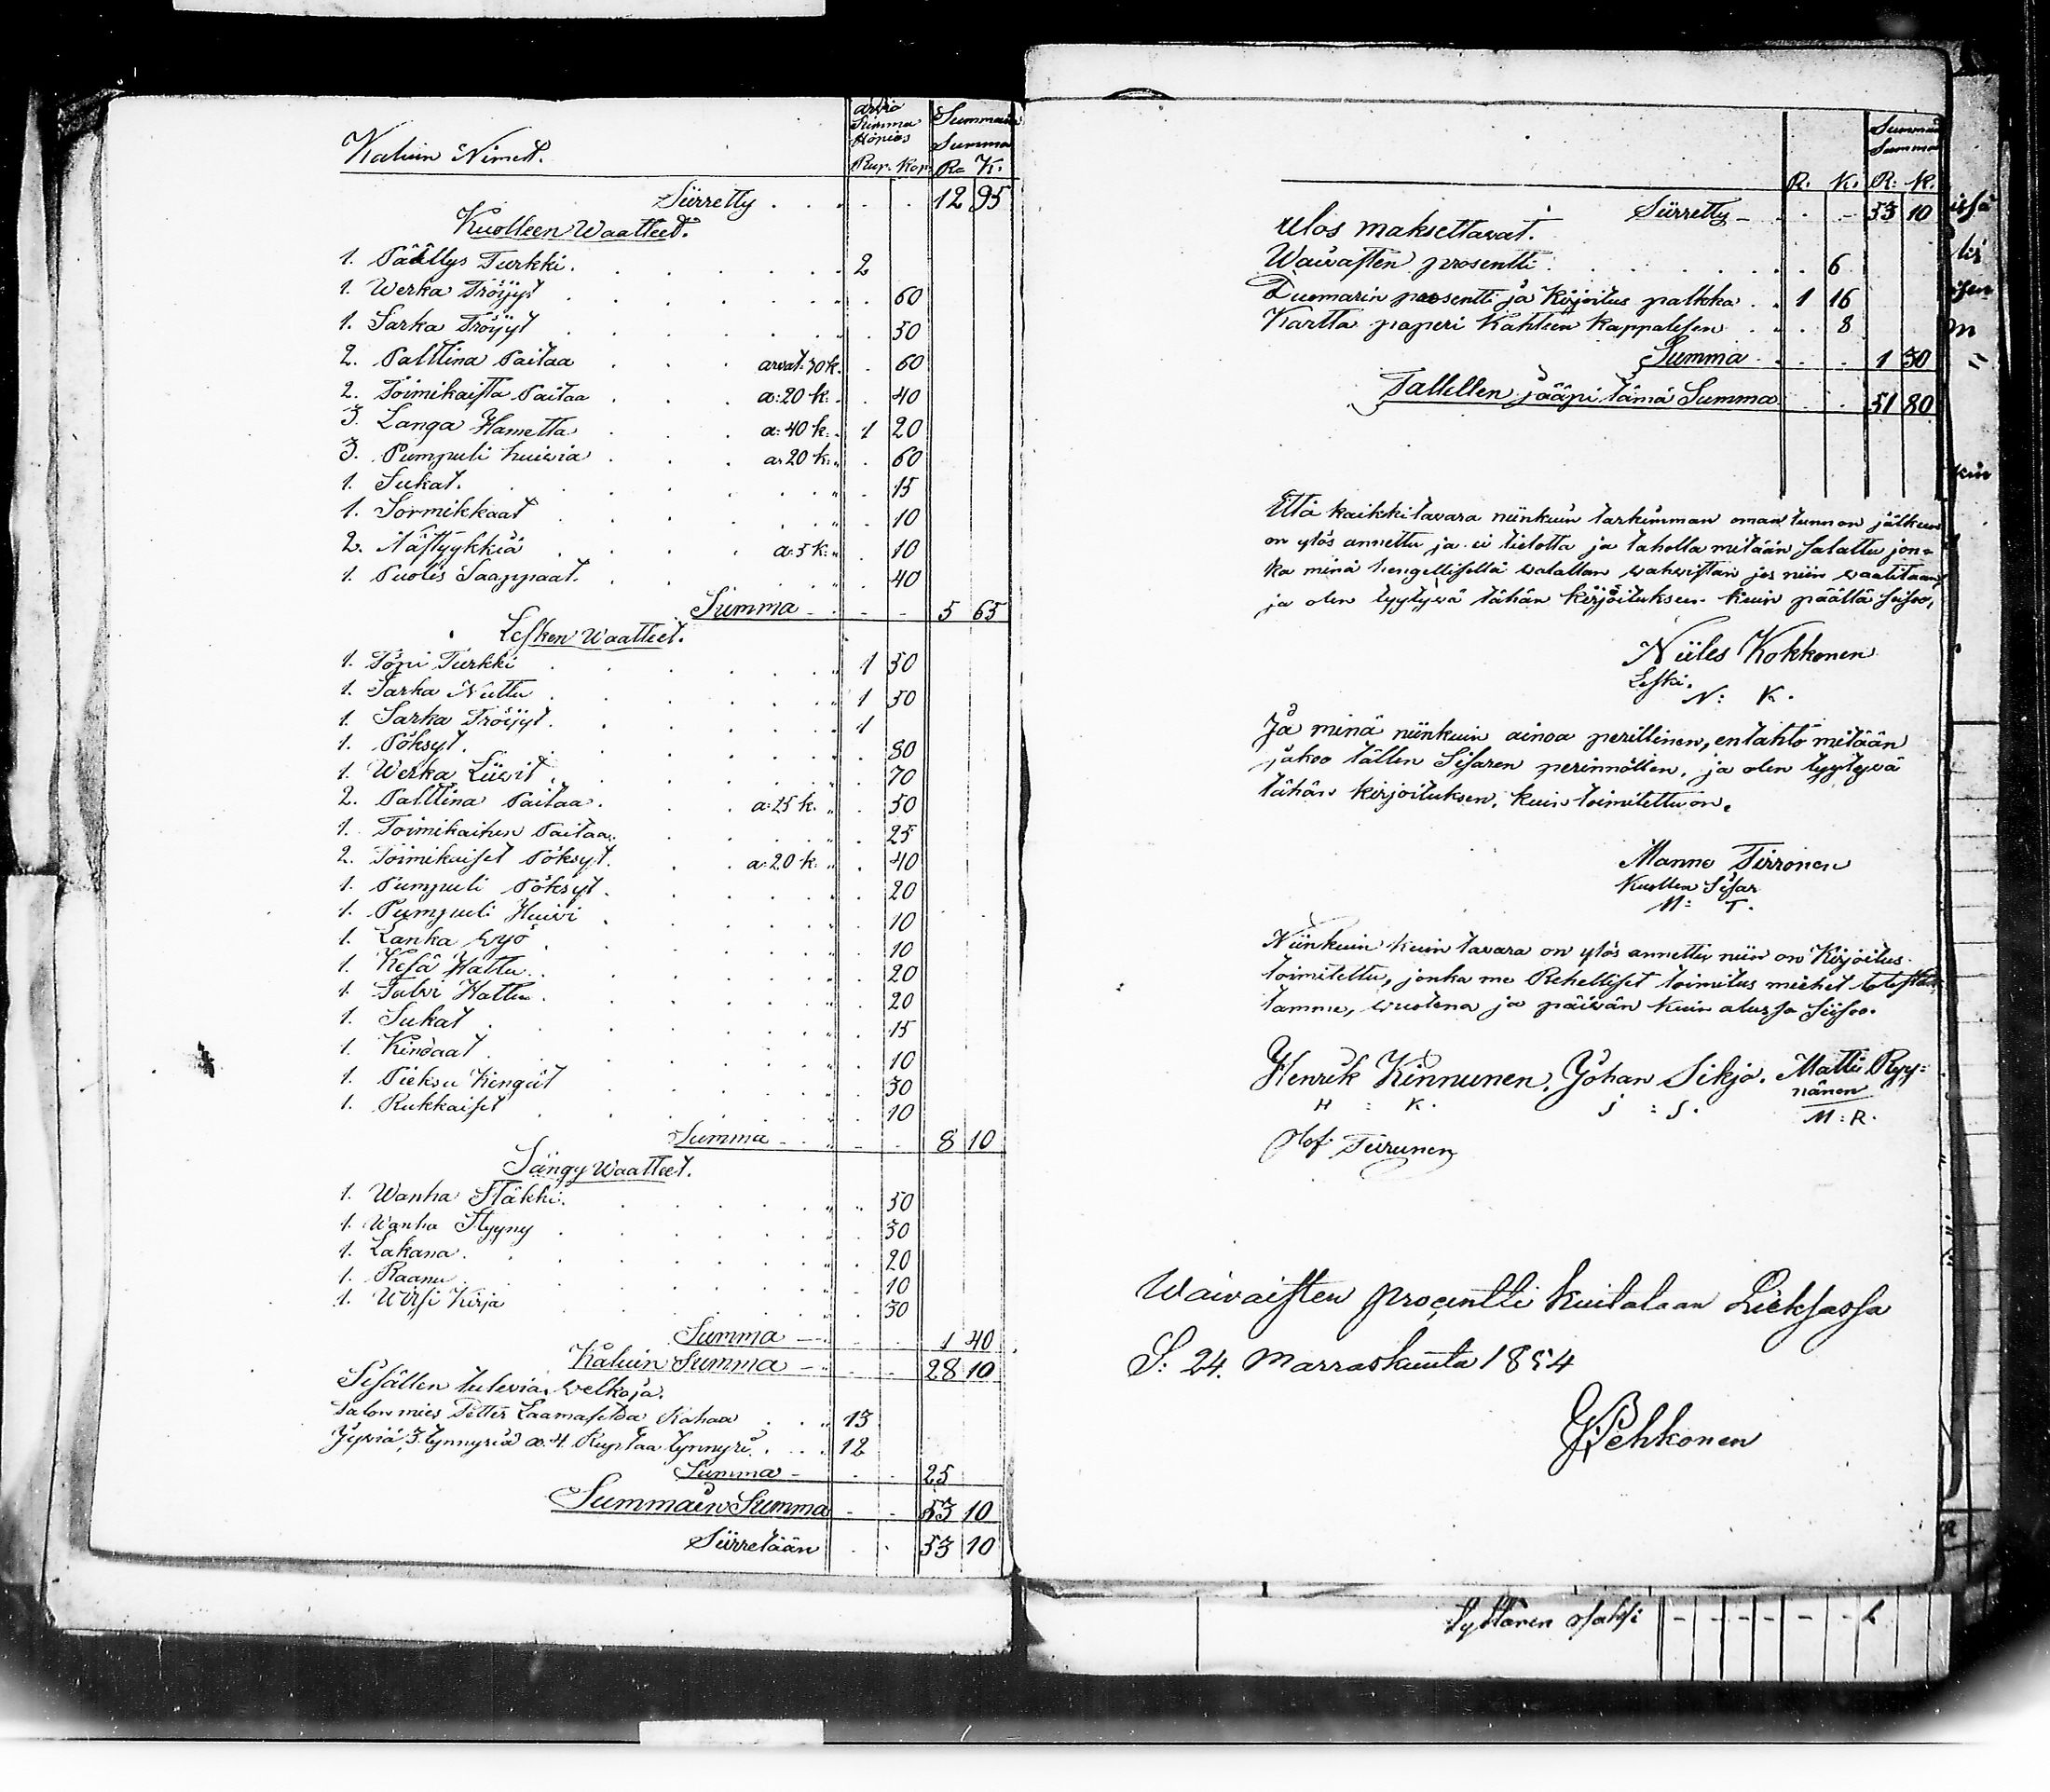 Kaluin Nimet.
arvio Summa Höpias
Summain Summa
Rup. Kop. Ra K.
Siirretty 12 95
Kuolleen Waatteet.
1. Päällys Turkki. 2
1. Werka Tröijyt 60
1. Sarka Tröijyt 50
2. Palttina Paitaa arvat. 30 k. 60
2. Toimikaista Paitaa a: 20 k: 40
3. Langa Hametta a: 40 k: 1 20
3. Pumpuli huivia a: 20 k: 60
1. Sukat. 15
1. Sormikkaat 10
2. Nästyykkiä a: 5 k: 10
1. Puolis Saappaat. 40
Summa 5 65
Lesken Waatteet.
1. Töpi Turkki 1 50
1. Sarka Nuttu 1 50
1. Sarka Tröijyt. 1
1. Pöksyt. 80
1. Werka Liivit 70
2. Palttina Paitaa. a: 25 k. 50
1. Toimikaihen Paitaa. 25
2. Toimikaiset Pöksyt. a: 20 k. 40
1. Pumpuli Pöksyt. 20
1. Pumpuli Huivi 10
1. Lanka wyö 10
1. Kesä Hattu. 20
1. Talvi Hattu. 20
1. Sukat 15
1. Kindaat 10
1. Pieksu Kengät 30
1. Rukkaiset 10
Summa 8 10
Sängy Waatteet.
1. Wanha Fläkki. 50
1. Wanha Styyny 30
1. Lakana. 20
1. Raanu 10
1. Wirsi Kirja 30
Summa 1 40
Kaluin Summa 28 10
Sisällen tulevia welkoja.
Talon mies Petter Laamaselda Rahaa 13
Jyviä 3. tynnyriä a. 4. Ruplaa tynnyri. 12
Summa 25
Summain Summa 53 10
Siirretään 53 10
Summain Summa
R. K. R: K.
Siirretty 53 10
Ulos maksettavat.
Waivasten prosentti 6
Tuomarin prosentti ja Kirjoitus palkka 1 16
Kartta paperi Kahteen Kappalesen 8
Summa 1 30
Tallellen jääpi tämä Summa 51 80
Että kaikki tavara niinkuin tarkimman oman tunnon jälkeen
on ylös annettu ja ei tiedotta ja taholla mitään salattu jon=
ka minä hengellisellä walallan wahvistan jos niin waaditaan,
ja olen tyytyvä tähän kirjoituksen kuin päällä seisoo,
Niiles Kokkonen
Leski.
N: K.
Ja minä niinkuin ainoa perillinen, en tahto mitään
jakoa tällen Sisaren perinnöllen, ja olen tyytyvä
tähän kirjoituksen, kuin toimitettu on.
Manne Tirronen
Kuollen Sisar
M: T.
Niinkuin kuin tavara on ylös annettu niin on Kirjoitus
toimitettu, jonka me Rehelliset toimitus miehet
tamme, wuotena ja päivän kuin alussa seisoo.
Henrik Kinnunen. Johan Sikjo. Matti Ryy=
nänen
H : K. J : S. M : R.
Olof Turunen
Waivaisten procentti kuitataan Lieksassa
S: 24. Marraskuuta 1854
J Pehkonen
Tyttären osaksi